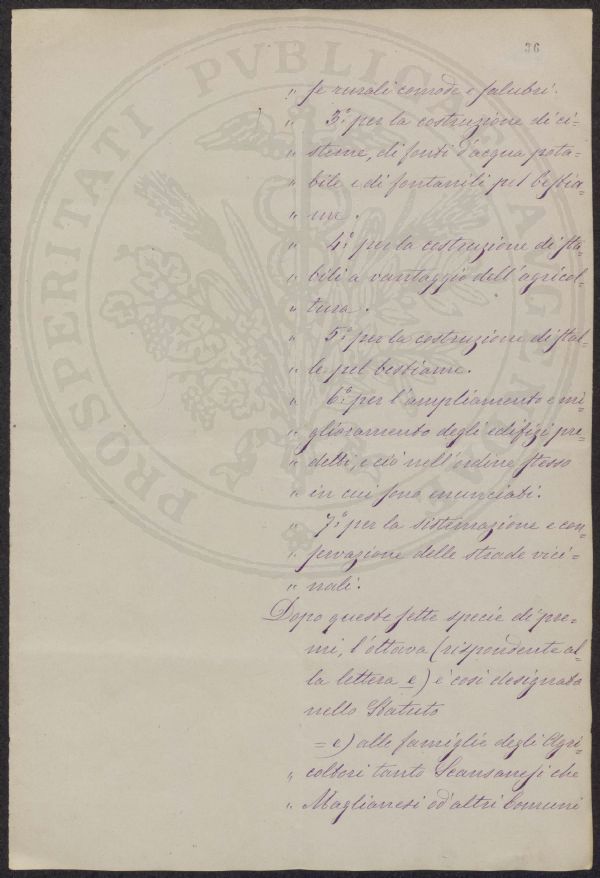 36
PROSPERITATI PVBLICAE AVGENDAE
" se rurali comode e salubri.
" 3.° per la costruzione di ci=
" sterne, di fonti d'acqua pota=
" bile e di fontanili pel bestia=
" me.
" 4.° per la costruzione di sta=
" bili a vantaggio dell'agricol=
" tura.
" 5.° per la costruzione di stal=
" le pel bestiame.
" 6.° per l'ampliamento e mi=
" glioramento degli edifizi pre=
" detti, e ciò nell'ordine stesso
" in cui sono enunciati.
" 7.° per la sistemazione e con=
" servazione delle strade vici=
" nali.
Dopo queste sette specie di pre=
mi, l'ottava (rispondente al=
la lettera e) è così designata
nello Statuto
= e) alle famiglie degli Agri=
" coltori tanto Scansanesi che
" Maglianesi od'altri Comuni